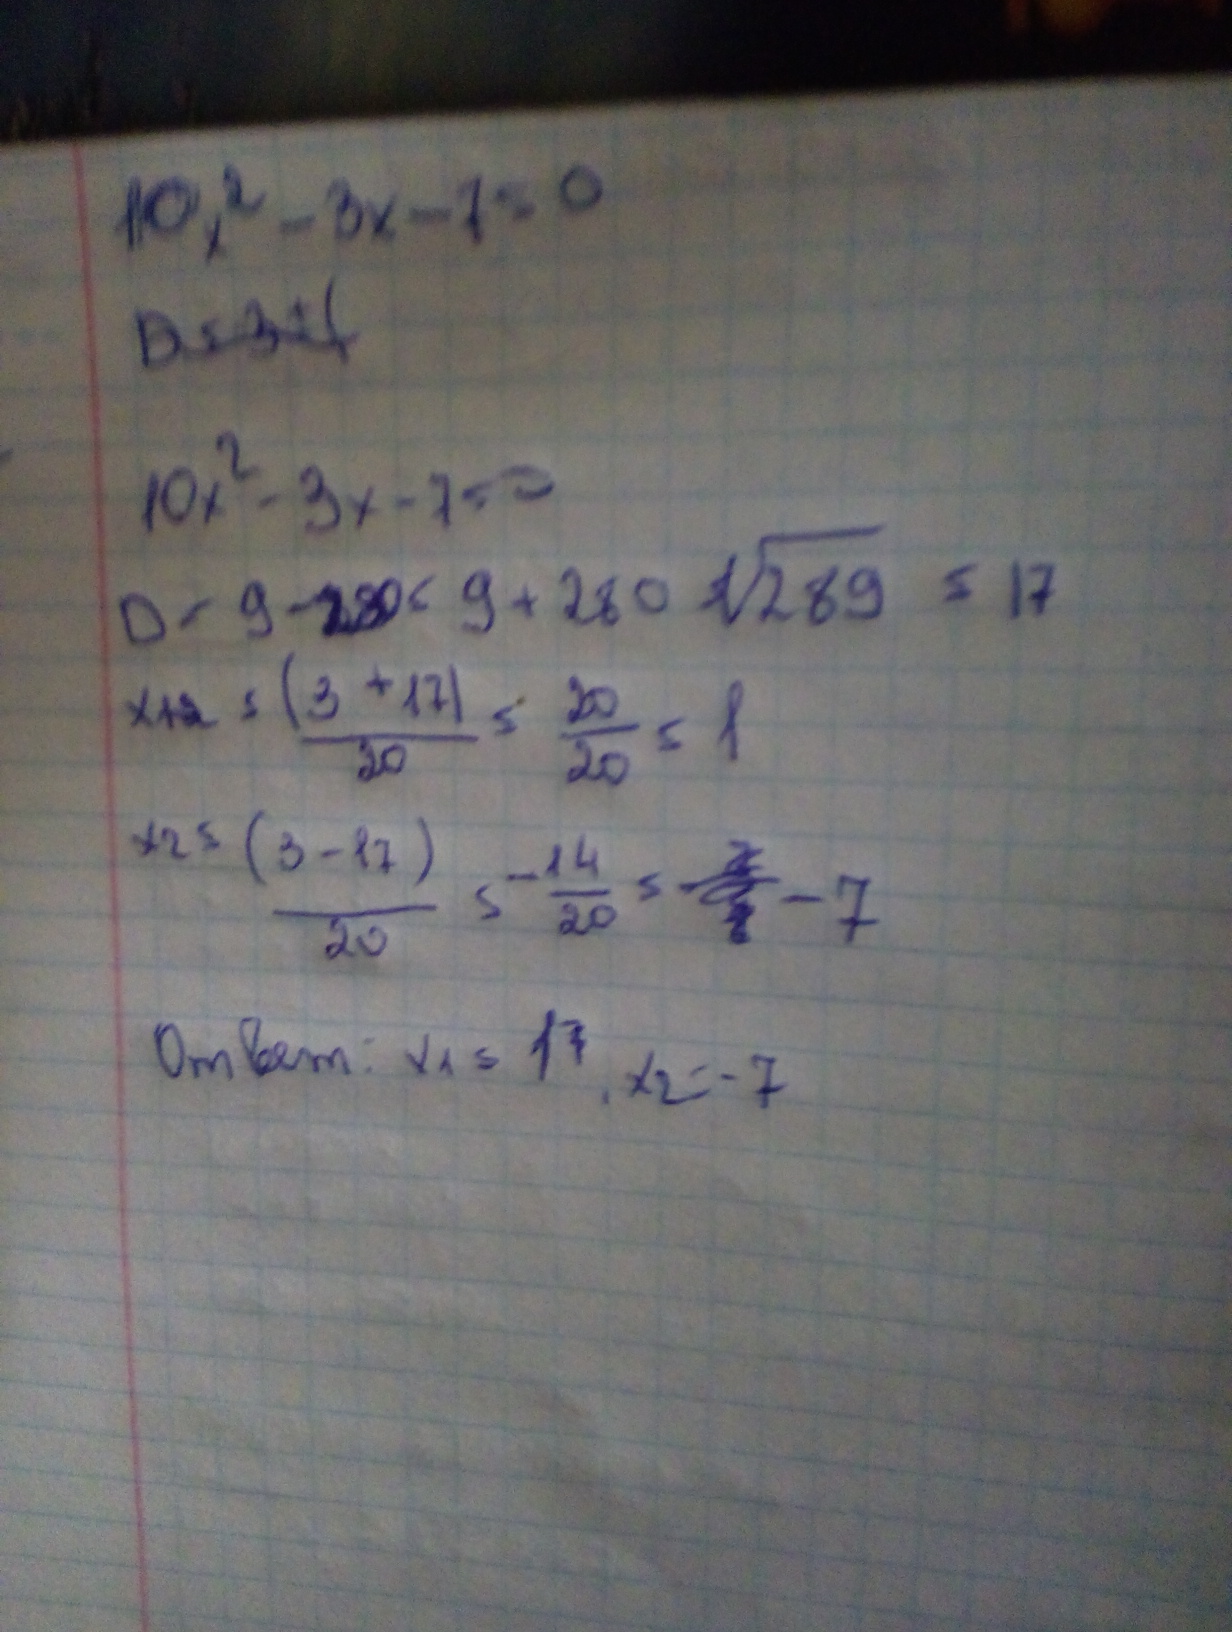 10x² - 3x - 7 = 0
10x² - 3x - 7 = 0
D = 9 - 280 = 9 + 280 √289 = 17
x₁ = (3 + 17)/20 = 20/20 = 1
x₂ = (3 - 17)/20 = -14/20 = - 7
Ответ: x₁ = 1, x₂ = - 7